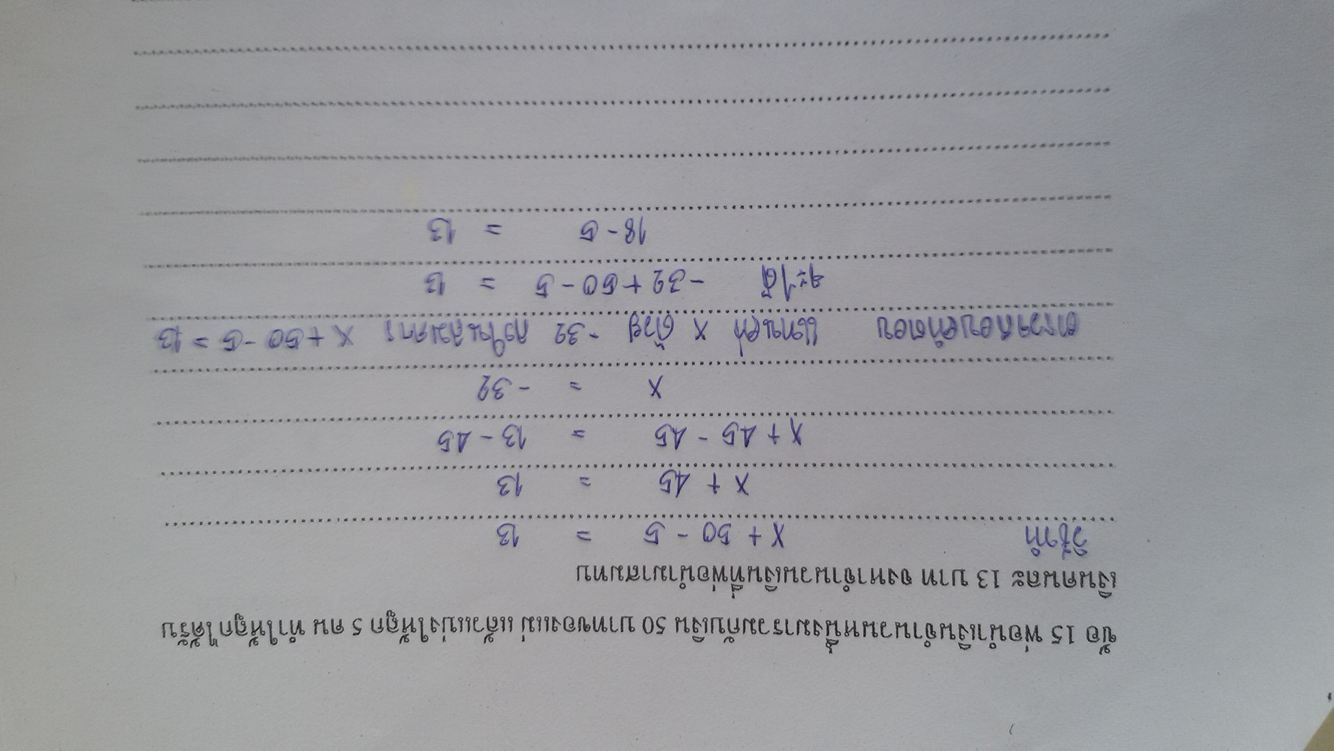 ข้อ 15 พ่อนำเงินจำนวนหนึ่งมารวมกับเงิน 50 บาทของแม่ แล้วแบ่งให้ลูก 5 คน ทำให้ลูกได้รับ
เงินคนละ 13 บาท จงหาจำนวนเงินที่พ่อนำมาสมทบ
วิธีทำ x + 50 - 5 = 13
x + 45 = 13
x + 45 - 45 = 13 - 45
x = - 32
ตรวจคำตอบ แทนค่า x ด้วย - 32 ลงในสมการ x + 50 - 5 = 13
จะได้ - 32 + 50 - 5 = 13
18 - 5 = 13